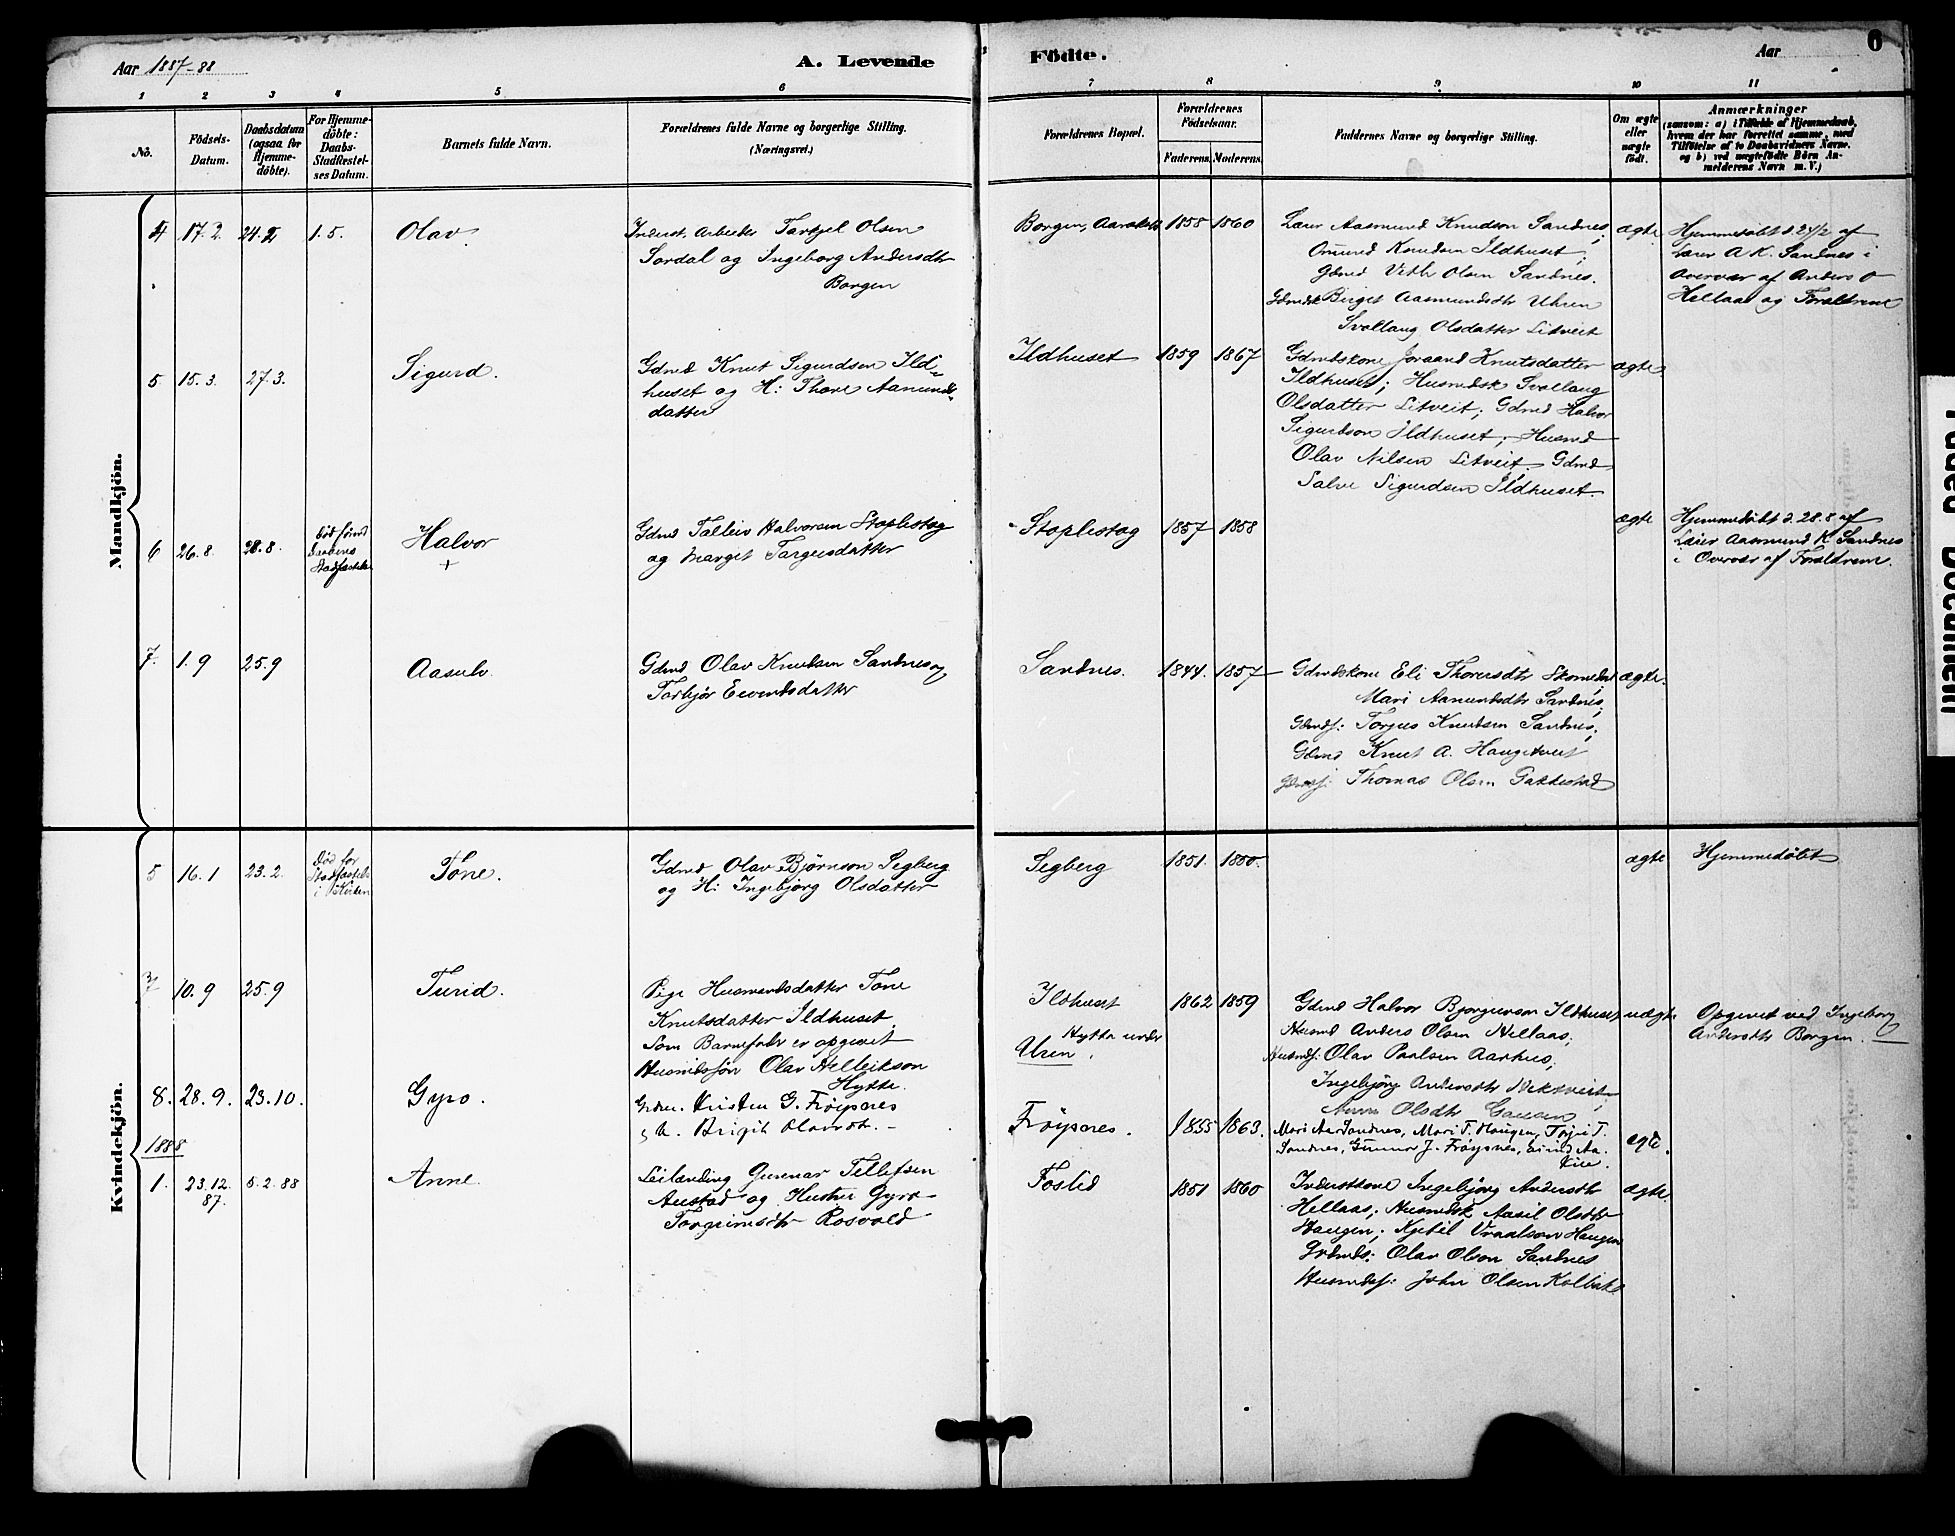 Aar 1887-88
A. Levende
Födte.
Aar
6
1 2 3 4 5 6 7 8 9 10 11
No.
Födsels-
Datum.
Daabsdatum
(ogsaa for
Hjemme-
döbte).
For Hjemme-
döbte:
Daabs-
Stadfæstel-
ses Datum.
Barnets fulde Navn.
Forældrenes fulde Navne og borgerlige Stilling.
(Næringsvei.)
Forældrenes Bopæl.
Forældrenes
Födselsaar.
Faderens. Moderens.
Faddernes Navne og borgerlige Stilling.
Om ægte
eller
uægte
födt.
Anmærkninger
(saasom: a) i Tilfælde af Hjemmedaab,
hvem der har forrettet samme, med
Tilföielse af to Daabsvidners Navne.
og b) ved uægtefödte Börn An-
melderens Navn m. V.)
Mandkjön.
4 17.2 24.2 1.5. Olav.
Inderst, Arbeider Tarkjel Olsen
Sordal og Ingeborg Andersdtr
Borgen
Borgen, 1858 1860
Lærer Aasmund Knudson Sandnes;
Omund Knudsen Ildhuset;
Gdmd Veth Olsen Sandnes.
Gdmdsk Birget Aasmundsdtr Uhren
Svallaug Olsdatter Litveit
ægte
Hjemmedøbt d. 24/2 af
Lærer A K. Sandnes i
Overvær af Anders O
Hellaas og Forældrene
5 15.3. 27.3. Sigurd.
Gdmd Knut Sigurdsen Ild-
huset og H: Thore Aamunds-
datter
Ildhuset 1859 1867
Gdmdskone Joraand Knutsdatter
Ildhuset; Husmdsk Svallaug
Olsdatter Litveit; Gdmd Halvor
Sigurdson Ildhuset; Husmd
Olav Nilsen Litveit. Gdmd
Salve Sigurdsen Ildhuset.
ægte
6 26.8. 28.8.
død førend
Daabens
Stadfæstelse
Halvor
+
Gdmd Talleiv Halvorsen Stoplestog
og Marget Targusdatter
Stoplestog 1857 1858
ægte
Hjemmedøbt d. 28.8 af
Lærer Aasmund K. Sandnes
i Overvær af Forældrene.
7. 1.9 25.9 Aasulv.
Gdmd Olav Knutsen Sandnes og
Torbjør Eevindsdatter
Sandnes. 1844. 1857
Gdmdskone Eli Thorusdtr Skomedal
Mari Aamundsdtr Sandnes;
Gdmdsf: Torjus Knudsen Sandnes;
Gdmd Knut A. Haugetveit
Gdmdsf: Thomas Olsen Gakkestad
ægte.
Kvindekjön.
5 16.1 23.2.
Død før
Stadfæstels
i Kirken
Tone.
Gdmd Olav Bjørnson Segberg
og H: Ingebjørg Olsdatter
Segberg 1851. 1850.
ægte
Hjemmedøbt
7 10.9 25.9 Turid.
Pige Husmandsdatter Tone
Knutsdatter Ildhuset
Som Barnefader er opgivet
Husmdssøn Olav Helleikson
Hytte.
Ildhuset 1862 1859
Hytta under
Uren.
Gdmd Halvor Bjorguvson Ildhuset
Husmd Anders Olsen Hellaas;
Husmdsf: Olav Paalsen Aarhus;
Ingebjørg Andersdtr
Olsdtr
uægte
Opgivet ved Ingeborg
Andersdtr Borgen.
8. 28.9. 23.10. Gyro.
Gdm. Kristen G. Frøysnes
Birgit Olavsdt.
Frøysnes. 1855 1863.
Mari Aa Sandnes, Mari T. Haugen, Torjus T.
Sandnes, Gunnar J. Frøysnes, Eivind Aa.
ægte.
1888
1. 23.12. 87. 5.2.88 Anne.
Leilending Gunnar Tellefsen
Austad og Hustru Gyro
Torgrimsdtr Rosvold
Foslid 1851 1860
Inderstkone Ingebjørg Andersdtr
Hellaas; Husmdsk Aasil Olsdtr
Haugen; Kjetil Vraalson Haugen
Grdmds: Olav Olson Sandnes
Husmdsf: John Olsen
ægte.